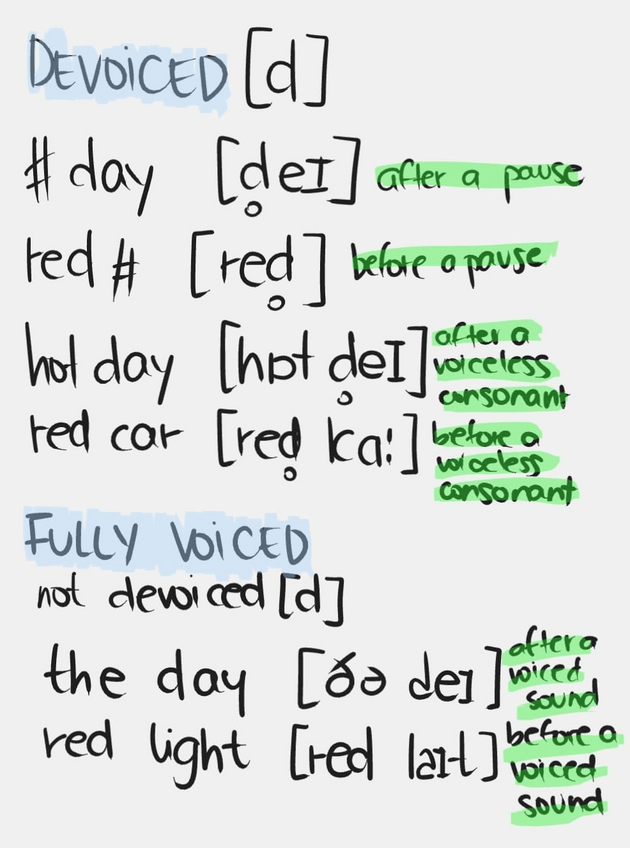 DEVOICED [d]
# day [d̥eɪ] after a pause
red # [red̥] before a pause
hot day [hɒt d̥eɪ] after a
voiceless
consonant
red car [red̥ kaː] before a
voiceless
consonant
FULLY VOICED
not devoiced [d]
the day [ðə deɪ] after a
voiced
sound
red light [red laɪt] before a
voiced
sound